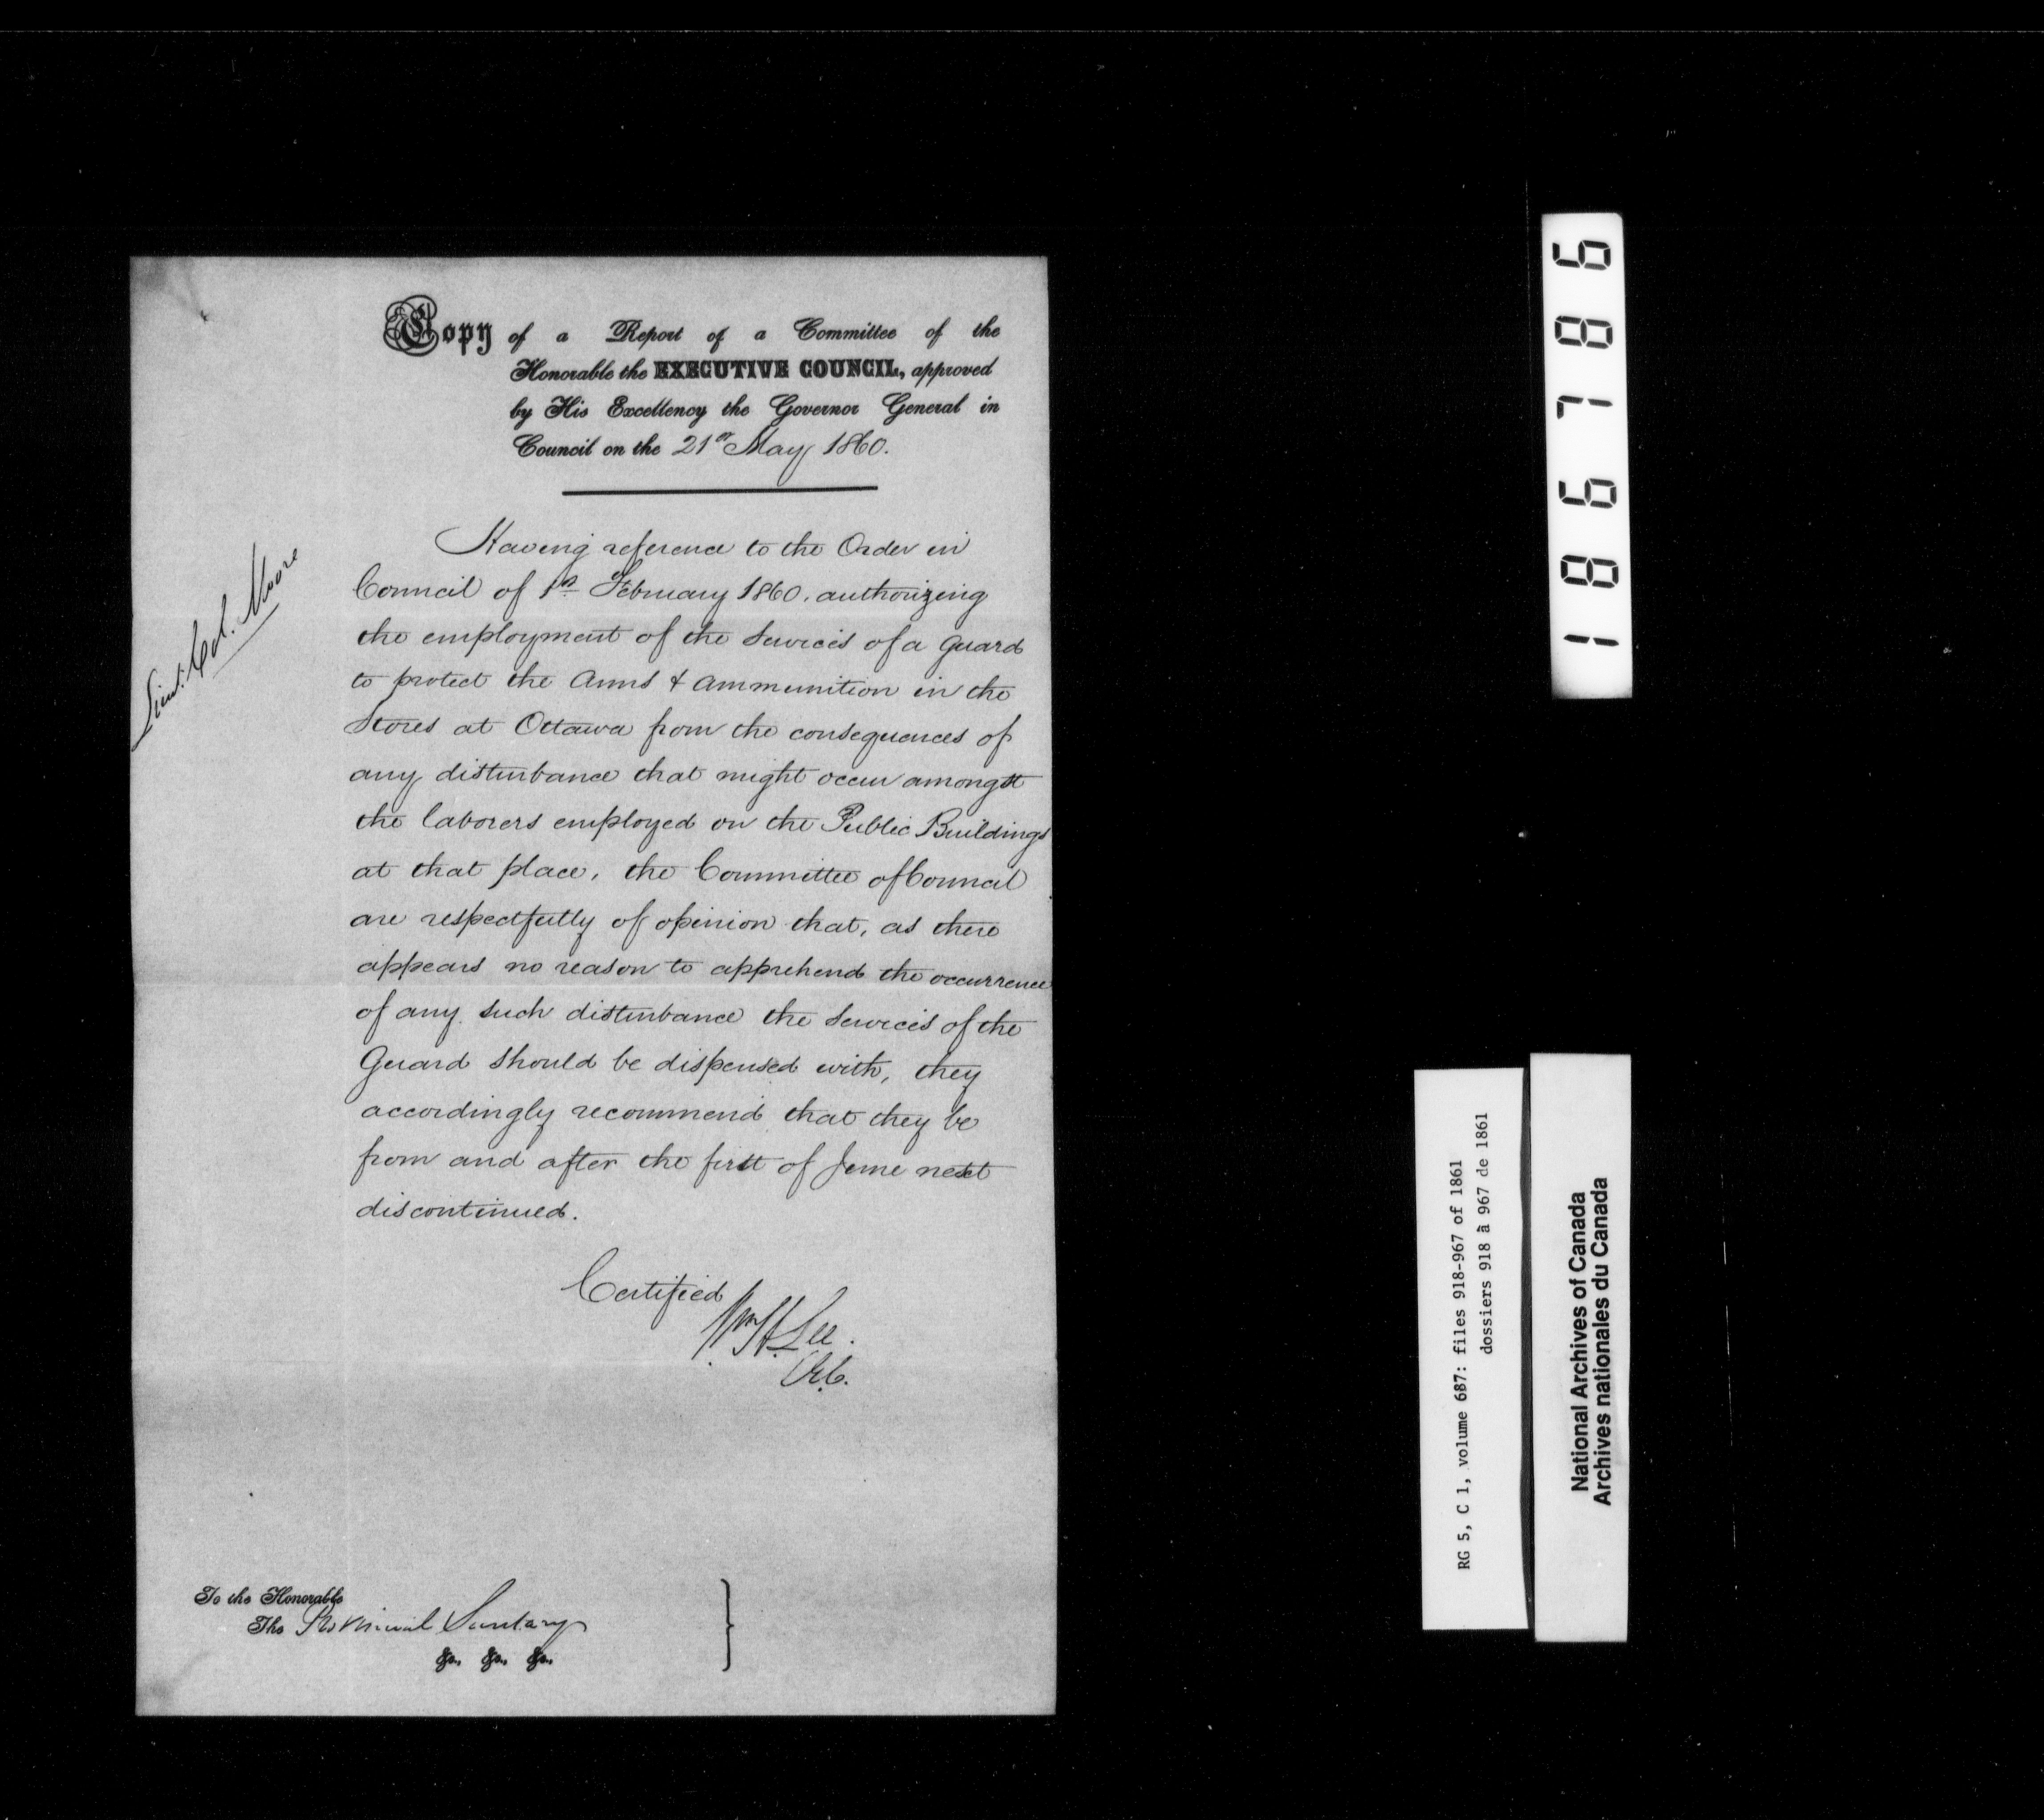 Copy of a Report of a Committee of the
Honorable the EXECUTIVE COUNCIL, approved
by His Excellency the Governor General in
Council on the 21st May 1860.
Lieut. Col. Moore
Having reference to the Order in
Council of 1st February 1860, authorizing
the employment of the services of a guard
to protect the Arms & Ammunition in the
Stores at Ottawa from the consequences of
any disturbance that might occur amongst
the laborers employed on the Public Buildings
at that place, the Committee of Council
are respectfully of opinion that, as there
appears no reason to apprehend the occurrence
of any such disturbance the services of the
Guard should be dispensed with, they
accordingly recommend that they be
from and after the first of June next
discontinued.
Certified
Wm H. Lee.
To the Honorable
The Provincial Secretary
&c., &c., &c.,
186786
RG 5, C 1, volume 687: files 918-967 of 1861
dossiers 918 à 967 de 1861
National Archives of Canada
Archives nationales du Canada